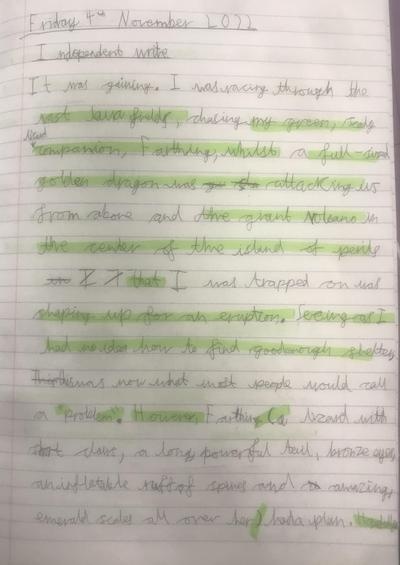 Friday 4th November 2022
Independent write
It was gaining. I was racing through the
vast lava fields, chasing my green, scaly
lizard
companion, Farthing, whilst a full-sized
golden dragon was attacking us
from above and the giant volcano in
the center of the island of perils
that I was trapped on was
shaping up for an eruption. Seeing as I
had no idea how to find good enough shelter,
this was now what most people would call
a "problem". However Farthing (a lizard with
claws, a long, powerful tail, bronze eyes,
an inflatable ruff of spines and amazing,
emerald scales all over her) had a plan.